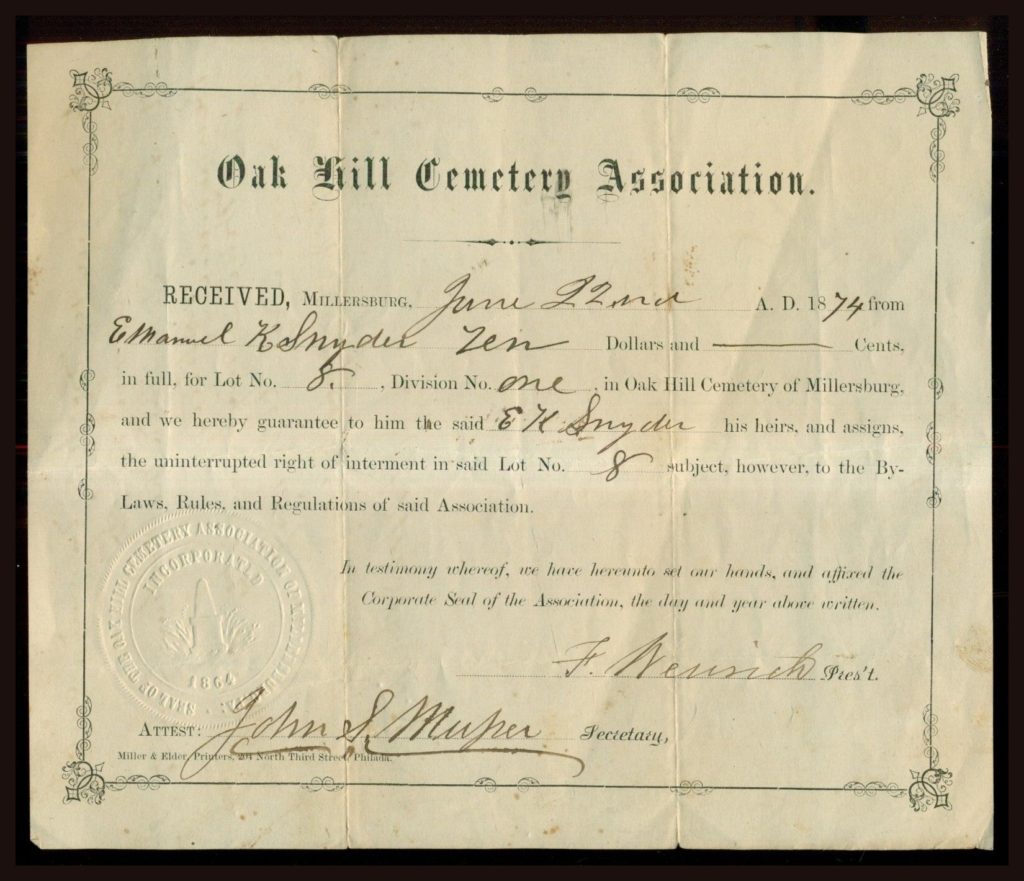 Oak Hill Cemetery Association.
RECEIVED, MILLERSBURG, June 22nd A. D. 1874 from
Emanuel K Snyder Ten Dollars and —— Cents,
in full, for Lot No. 8. , Division No. one , in Oak Hill Cemetery of Millersburg,
and we hereby guarantee to him the said E K Snyder his heirs, and assigns,
the uninterrupted right of interment in said Lot No. 8 subject, however, to the By-
Laws, Rules, and Regulations of said Association.
In testimony whereof, we have hereunto set our hands, and affixed the
Corporate Seal of the Association, the day and year above written.
F. Wenrich Pres't.
SEAL OF THE OAK HILL CEMETERY ASSOCIATION OF
INCORPORATED
1864
ATTEST: John S. Musser Secretary,
Miller & Elder, Printers, 204 North Third Street, Philada.